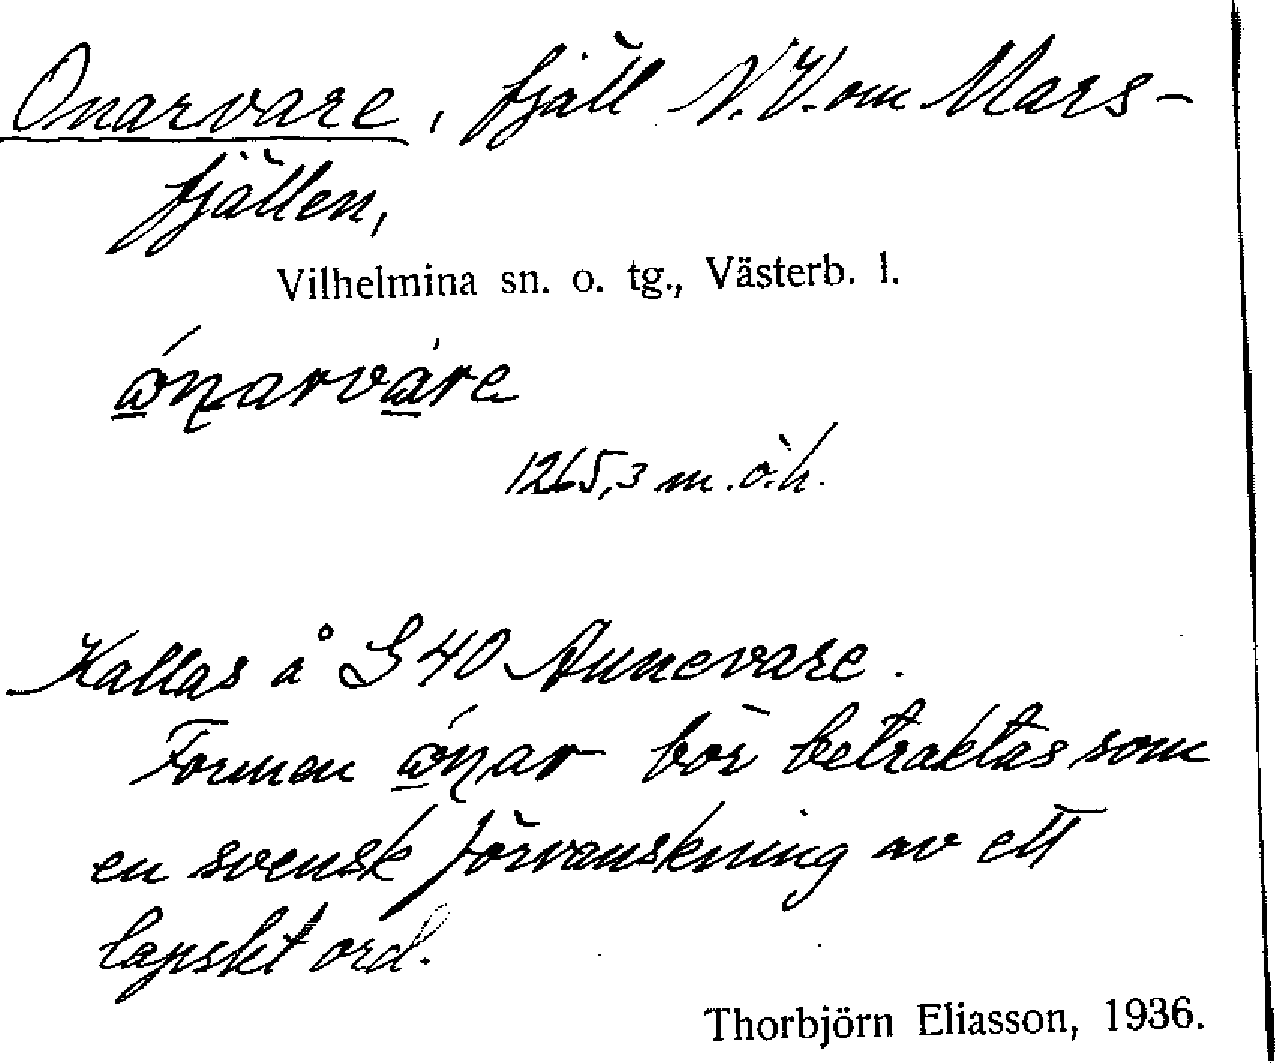 Onarvare, fjäll N.V. om Mars-
fjällen,
Vilhelmina sn. o. tg., Västerb. l.
1265,3 m.ö.h.
Kallas å G 40 Aunevare.
Formen bör betraktas som
en svensk förvanskning av ett
lapskt ord.
Thorbjörn Eliasson, 1936.